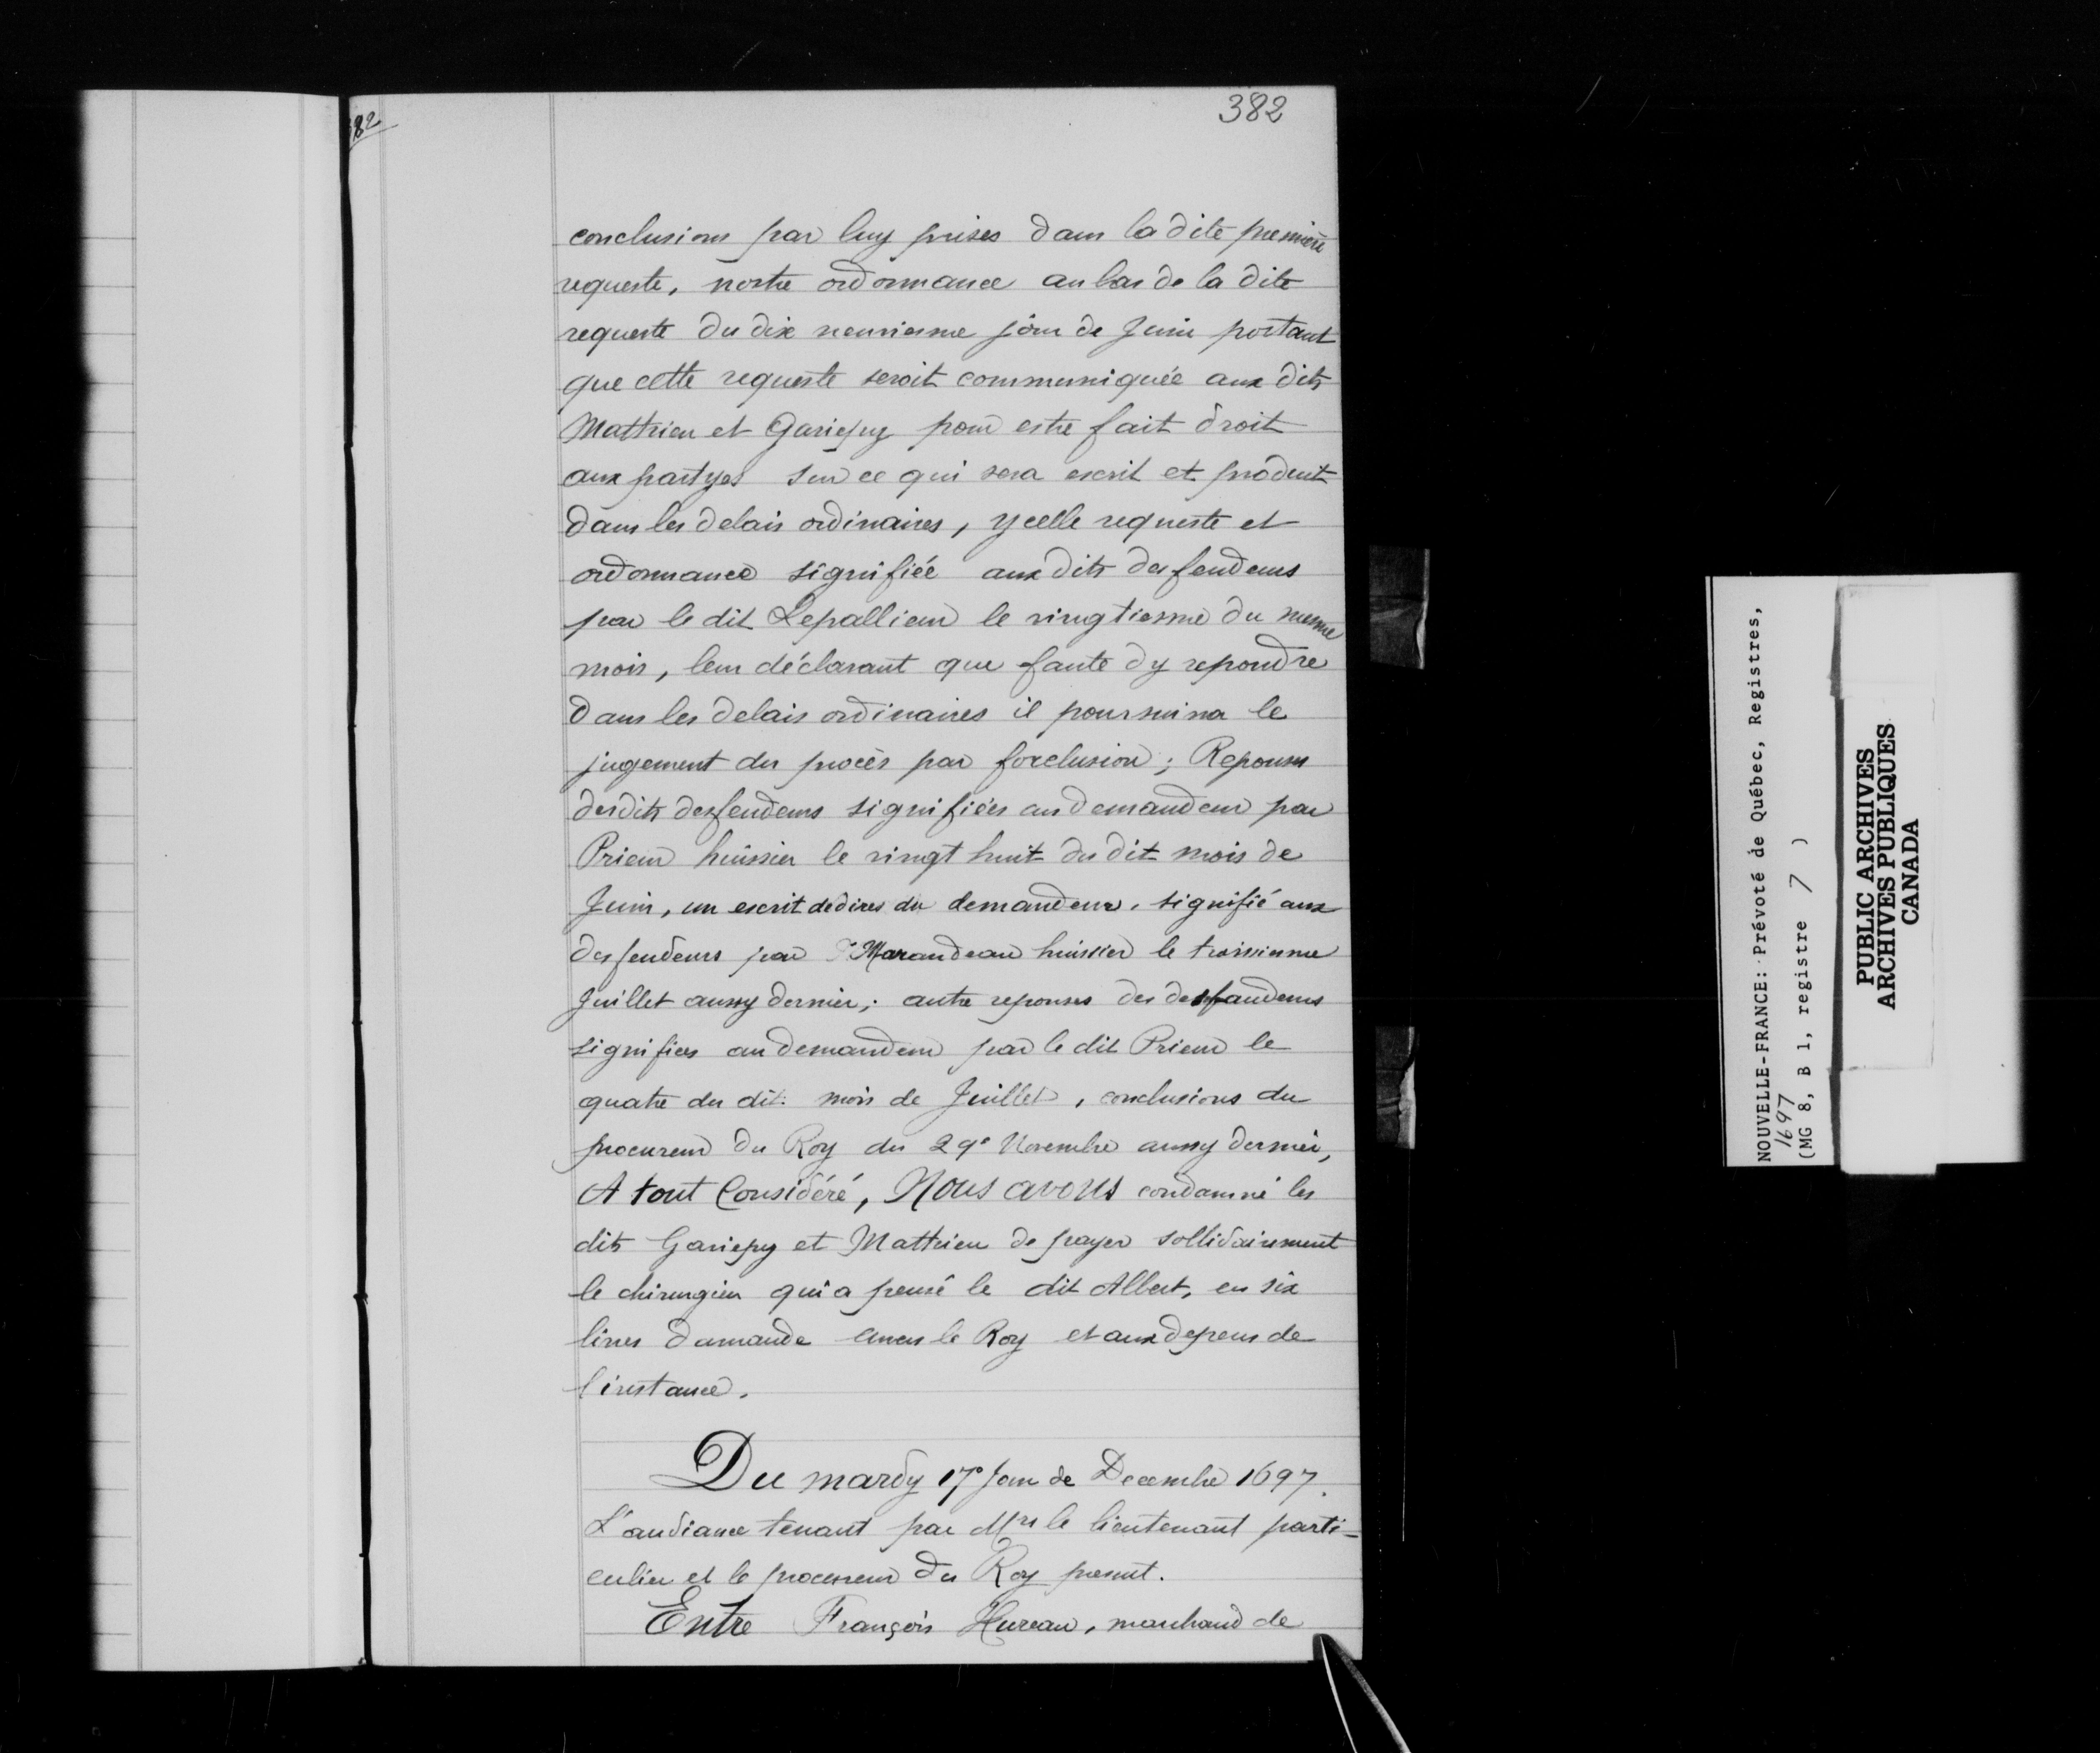 382
382
conclusions par luy prises dans la dite première
requeste, nostre ordonnance au bas de la dite
requeste du dix neuviesme jour de Juin portant
que cette requeste seroit communiquée aux dits
Mathieu et Gariepy pour estre fait droit
aux partyes sur ce qui sera escrit et produit
dans les delais ordinaires, ycelle requeste et
ordonnance signifiée aux dits desfendeurs
par le dit Lepallieur le vingtiesme du mesme
mois, leur déclarant que faute dy repondre
dans les delais ordinaires il poursuivra le
jugement du procès par forclusion; Reponses
desdits desfendeurs signifiées au demandeur par
Prieur huissier le vingt huit du dit mois de
Juin, un escrit dedires du demandeur, signifié aux
desfendeurs par Marandeau huissier le troissiesme
Juillet aussy dernier; autre reponses des desfandeurs
signifiées au demandeur par le dit Prieur le
quatre du dit mois de Juillet, conclusions du
procureur du Roy du 29e Novembre aussy dernier,
A tout Considéré, Nous avons condamné les
dits Gariepy et Mathieu de payer sollidairement
le chirurgien qui a pensé le dit Albert, en six
livres damande envers le Roy et aux depens de
l'instance.
Du mardy 17e Jour de Decembre 1697.
L'audiance tenant par Mrs le lieutenant parti-
culier et le procureur du Roy present.
Entre François Hureau, marchand de
NOUVELLE-FRANCE: Prévoté de Québec, Registres,
1697
(MG 8, B 1, registre 7 )
PUBLIC ARCHIVES
ARCHIVES PUBLIQUES
CANADA